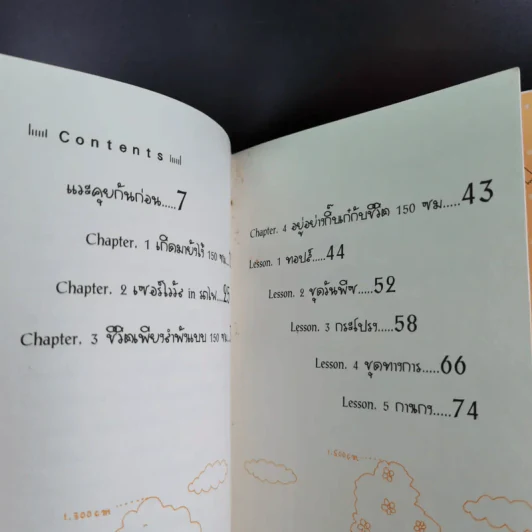 Contents
แวะคุยกันก่อน.....7
Chapter. 1 เกิดมายังไง 150 ซม.
Chapter. 2 เซอร์ไวว์ in รถไฟ...25
Chapter. 3 ชีวิตเพียงลำพังแบบ 150 ซม.
Chapter. 4 อยู่อย่างกิ๊บเก๋กับชีวิต 150 ซม.....43
Lesson. 1 ทอปส์.....44
Lesson. 2 ชุดวันพีซ.....52
Lesson. 3 กระโปรง.....58
Lesson. 4 ชุดทางการ.....66
Lesson. 5 กางเกง.....74